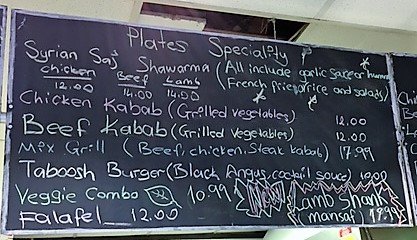 Plates Speciality
Syrian Saj Shawarma (All include garlic sauce or hummus
chicken Beef Lamb French fries or rice and salads)
12.00 14.00 14.00
Chicken Kabab (Grilled Vegetables) 12.00
Beef Kabab (Grilled Vegetables) 12.00
Mix Grill (Beef, chicken, Steak kabab) 17.99
Taboosh Burger (Black Angus, cocktail sauce) 10.00
Veggie Combo 10.99 Lamb Shank
Falafel 12.00 mansaf 17.99